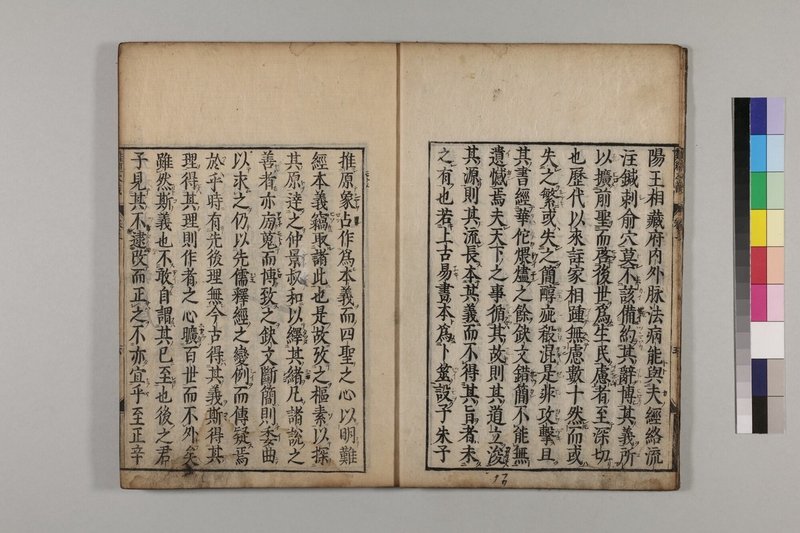 陽王相藏府内外脉法病能與夫經絡流
注鍼刺俞穴莫不該備約其辭博其義所
以擴前聖而啓後世爲生民慮者至深切
也歷代以來註家相踵無慮數十然而或
失之繁或失之簡醇疵殽混是非攻擊且
其書經華佗煨燼之餘缺文錯簡不能無
遺憾焉夫天下之事循其故則其道立浚
其源則其流長本其義而不得其旨者未
之有也若上古易書本爲卜筮設子朱子
推原象占作爲本義而四聖之心以明難
經本義竊取諸此也是故攷之樞素以探
其原達之仲景叔和以繹其緒凡諸說之
善者亦旁蒐而博致之缺文斷簡則委曲
以求之仍以先儒釋經之變例而傳疑焉
於乎時有先後理無今古得其義斯得其
理得其理則作者之心曠百世而不外矣
雖然斯義也不敢自謂其已至也後之君
子見其不逮改而正之不亦宜乎至正辛